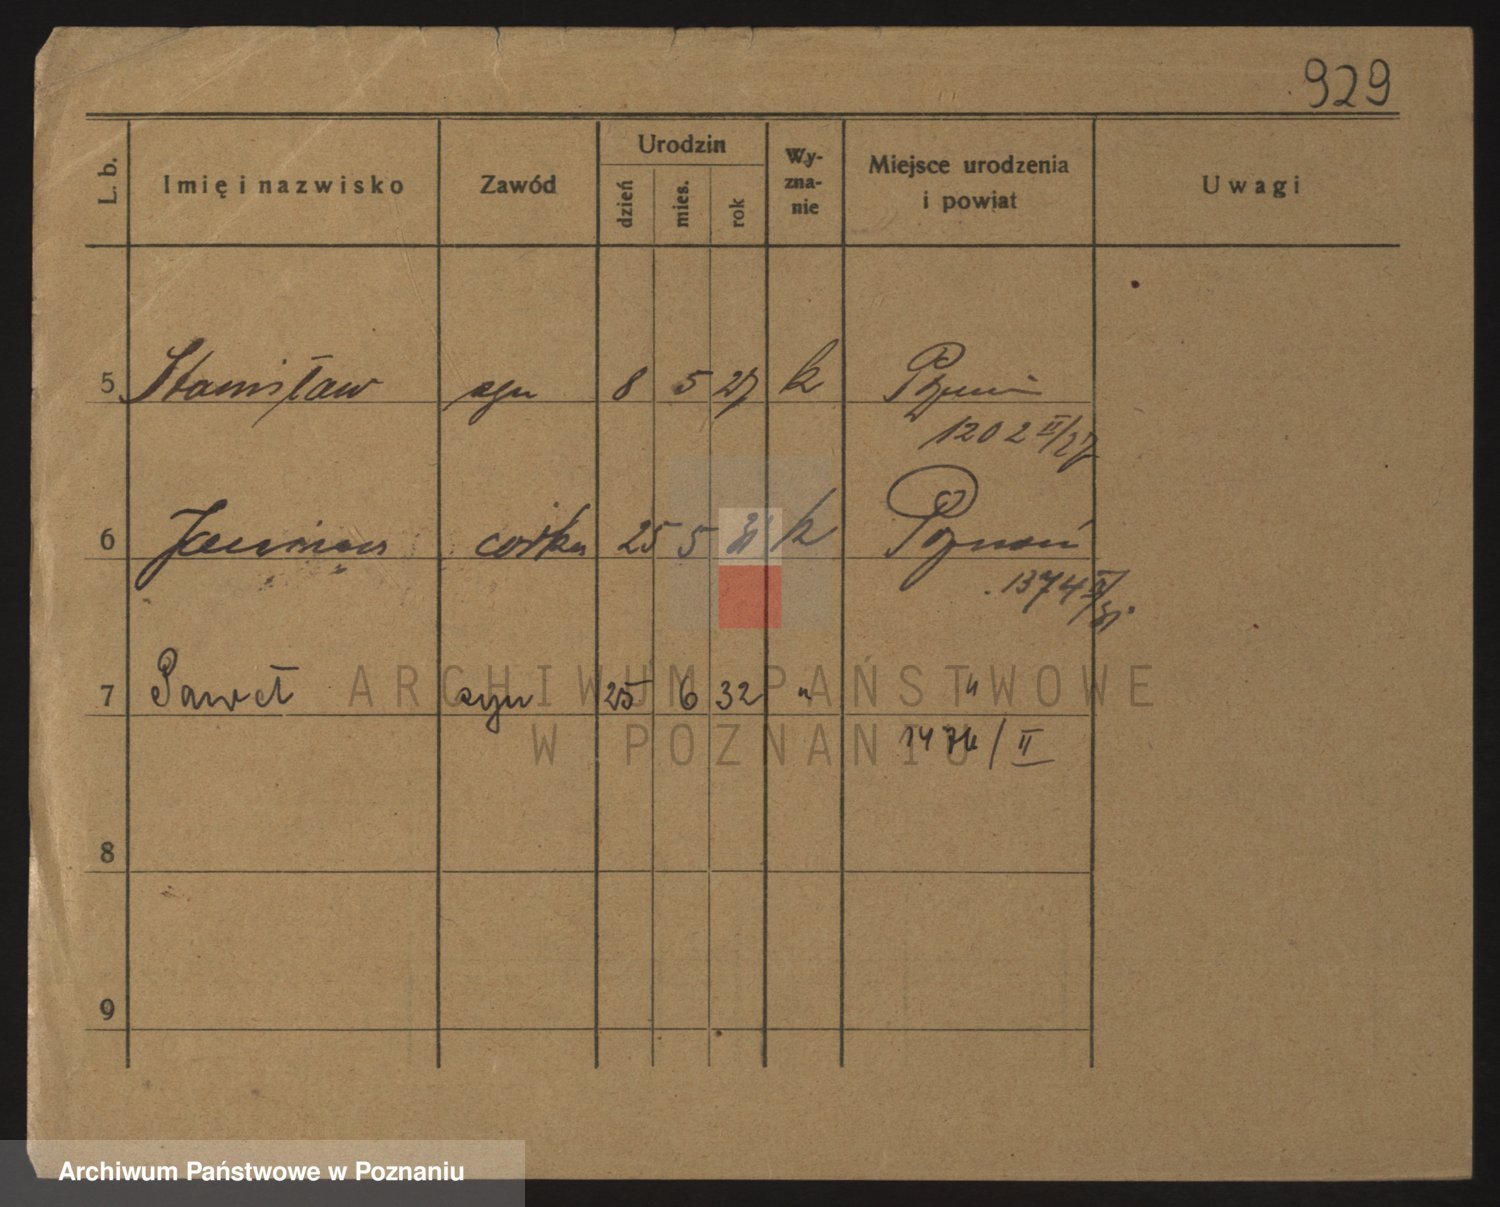 929
L. b.
Imię i nazwisko
Zawód
Urodzin
dzień
mies.
rok
Wy-
zna-
nie
Miejsce urodzenia
i powiat
Uwagi
5 Stanisław syn 8 5 27 k Poznań
1202 II/27
6 Janina córka 25 5 31 k Poznań
1374 II/31
7 Paweł syn 25 6 32 " "
/ II
8
9
ARCHIWUM PAŃSTWOWE
W POZNANIU
Archiwum Państwowe w Poznaniu